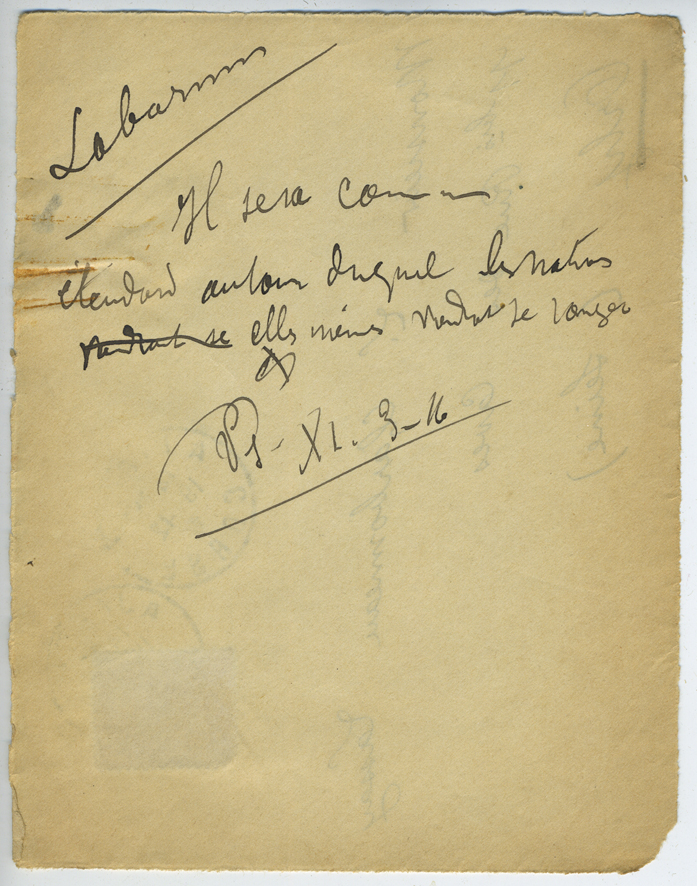 Labarum
Il sera comme
étendard autour duquel les nations
viendront se elles mêmes viendront se ranger
Ps - XI. 3-16